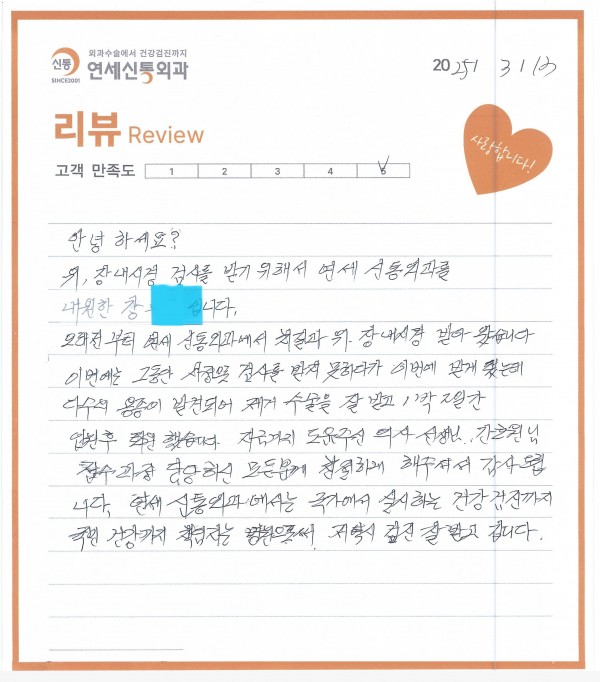 외과수술에서 건강검진까지
신통 연세신통외과
SIHCE2001
20 25 / 3 / 13
리뷰 Review
사랑합니다!
고객 만족도 1 2 3 4 5
안녕 하세요?
위, 장내시경 검사를 받기 위해서 연세 신통외과를
내원한 장 입니다.
오래전부터 연세 신통외과에서 치질과 위, 장 내시경 받아 왔습니다
이번에는 그동안 사정상 검사를 받지 못하다가 이번에 받게 됐는데
다수의 용종이 발견되어 제거 수술을 잘 받고 1박 2일간
입원후 퇴원 했습니다. 지금까지 도와주신 의사 선생님, 간호원님
접수 과정 담당하신 모든분께 친절하게 해주셔서 감사드립
니다. 연세 신통외과에서는 국가에서 실시하는 건강검진까지
국민 건강까지 책임지는 병원으로써, 저 역시 검진 잘 받고 갑니다.